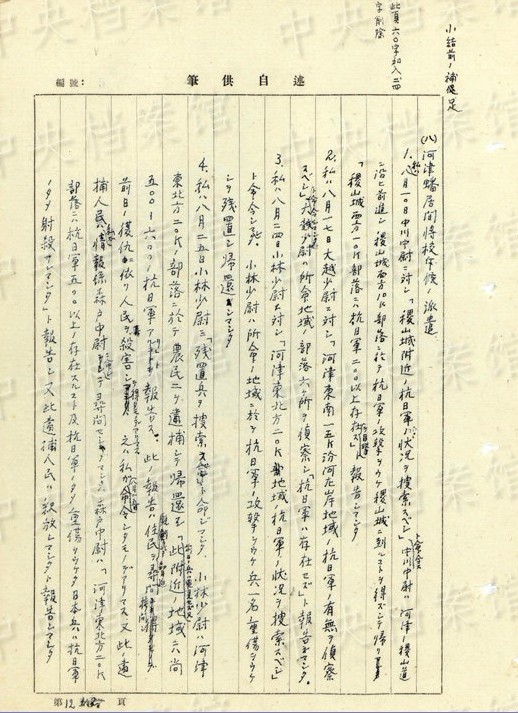 小結前ノ補促足
此頁六〇字加入二四
字削除
編號:
筆供自述
(八) 河津蟠居間将校斥候ノ派遣
1. 私ハ八月一〇日中川中尉ニ対シ「稷山城附近ノ抗日軍ノ状况ヲ搜索スベシ」ト命令 中川中尉ハ河津ー稷山道
ニ沿ヒ前進シ稷山城西方10K部落ニ於テ抗日軍ノ攻撃ヲウケ稷山城ニ到ルコトヲ得ズシテ帰リ
「稷山城西方一〇K部落ニハ抗日軍二〇〇以上存在ス」ト報告シマシタ
2. 私ハ八月一七日大越少尉ニ対シ「河津東南一五K汾河左岸地域ノ抗日軍ノ有無ヲ偵察
スベシ」 大越少尉ハ所命地域ノ部落六ヶ所ヲ偵察シ「抗日軍ハ存在セズ」ト報告シマシタ。
3. 私ハ八月二四日小林少尉ニ対シ「河津東北方二〇K地域ノ抗日軍ノ状况ヲ搜索スベシ」
ト命令シ 小林少尉ハ所命ノ地域ニ於テ抗日軍ノ攻撃ヲウケ兵一名重傷ヲウケ
シヲ残置シ帰還シマシタ
4. 私ハ八月二五日小林少尉ニ「残置兵ヲ搜索スベシ」ト命ジマシタ 小林少尉ハ河津
東北方二〇Kノ部落ニ於テ農民二ヲ逮捕シテ帰還シ「此附近ノ地域ニハ尚
五〇〜六〇〇ノ抗日軍アリ」ト報告ス。此ノ報告ハ住民ヲ尋問
前日ノ復仇ニ依リ人民ヲ殺害シ 之ハ私ガ命令シタモノデアリマス又此ノ逮
捕人民ハ情報係森戸中尉 ニ尋問セシメマシタ 森戸中尉ハ「河津東北方二〇K
部落ニハ抗日軍五〇〇以上ノ存在スルコト及抗日軍ノタメ重傷ヲウケタ日本兵ハ抗日軍
ノタメ射殺サレマシタ」ト報告シ又此逮捕人民ハ釈放シマシタト報告シマシタ
第12頁
中央档案馆